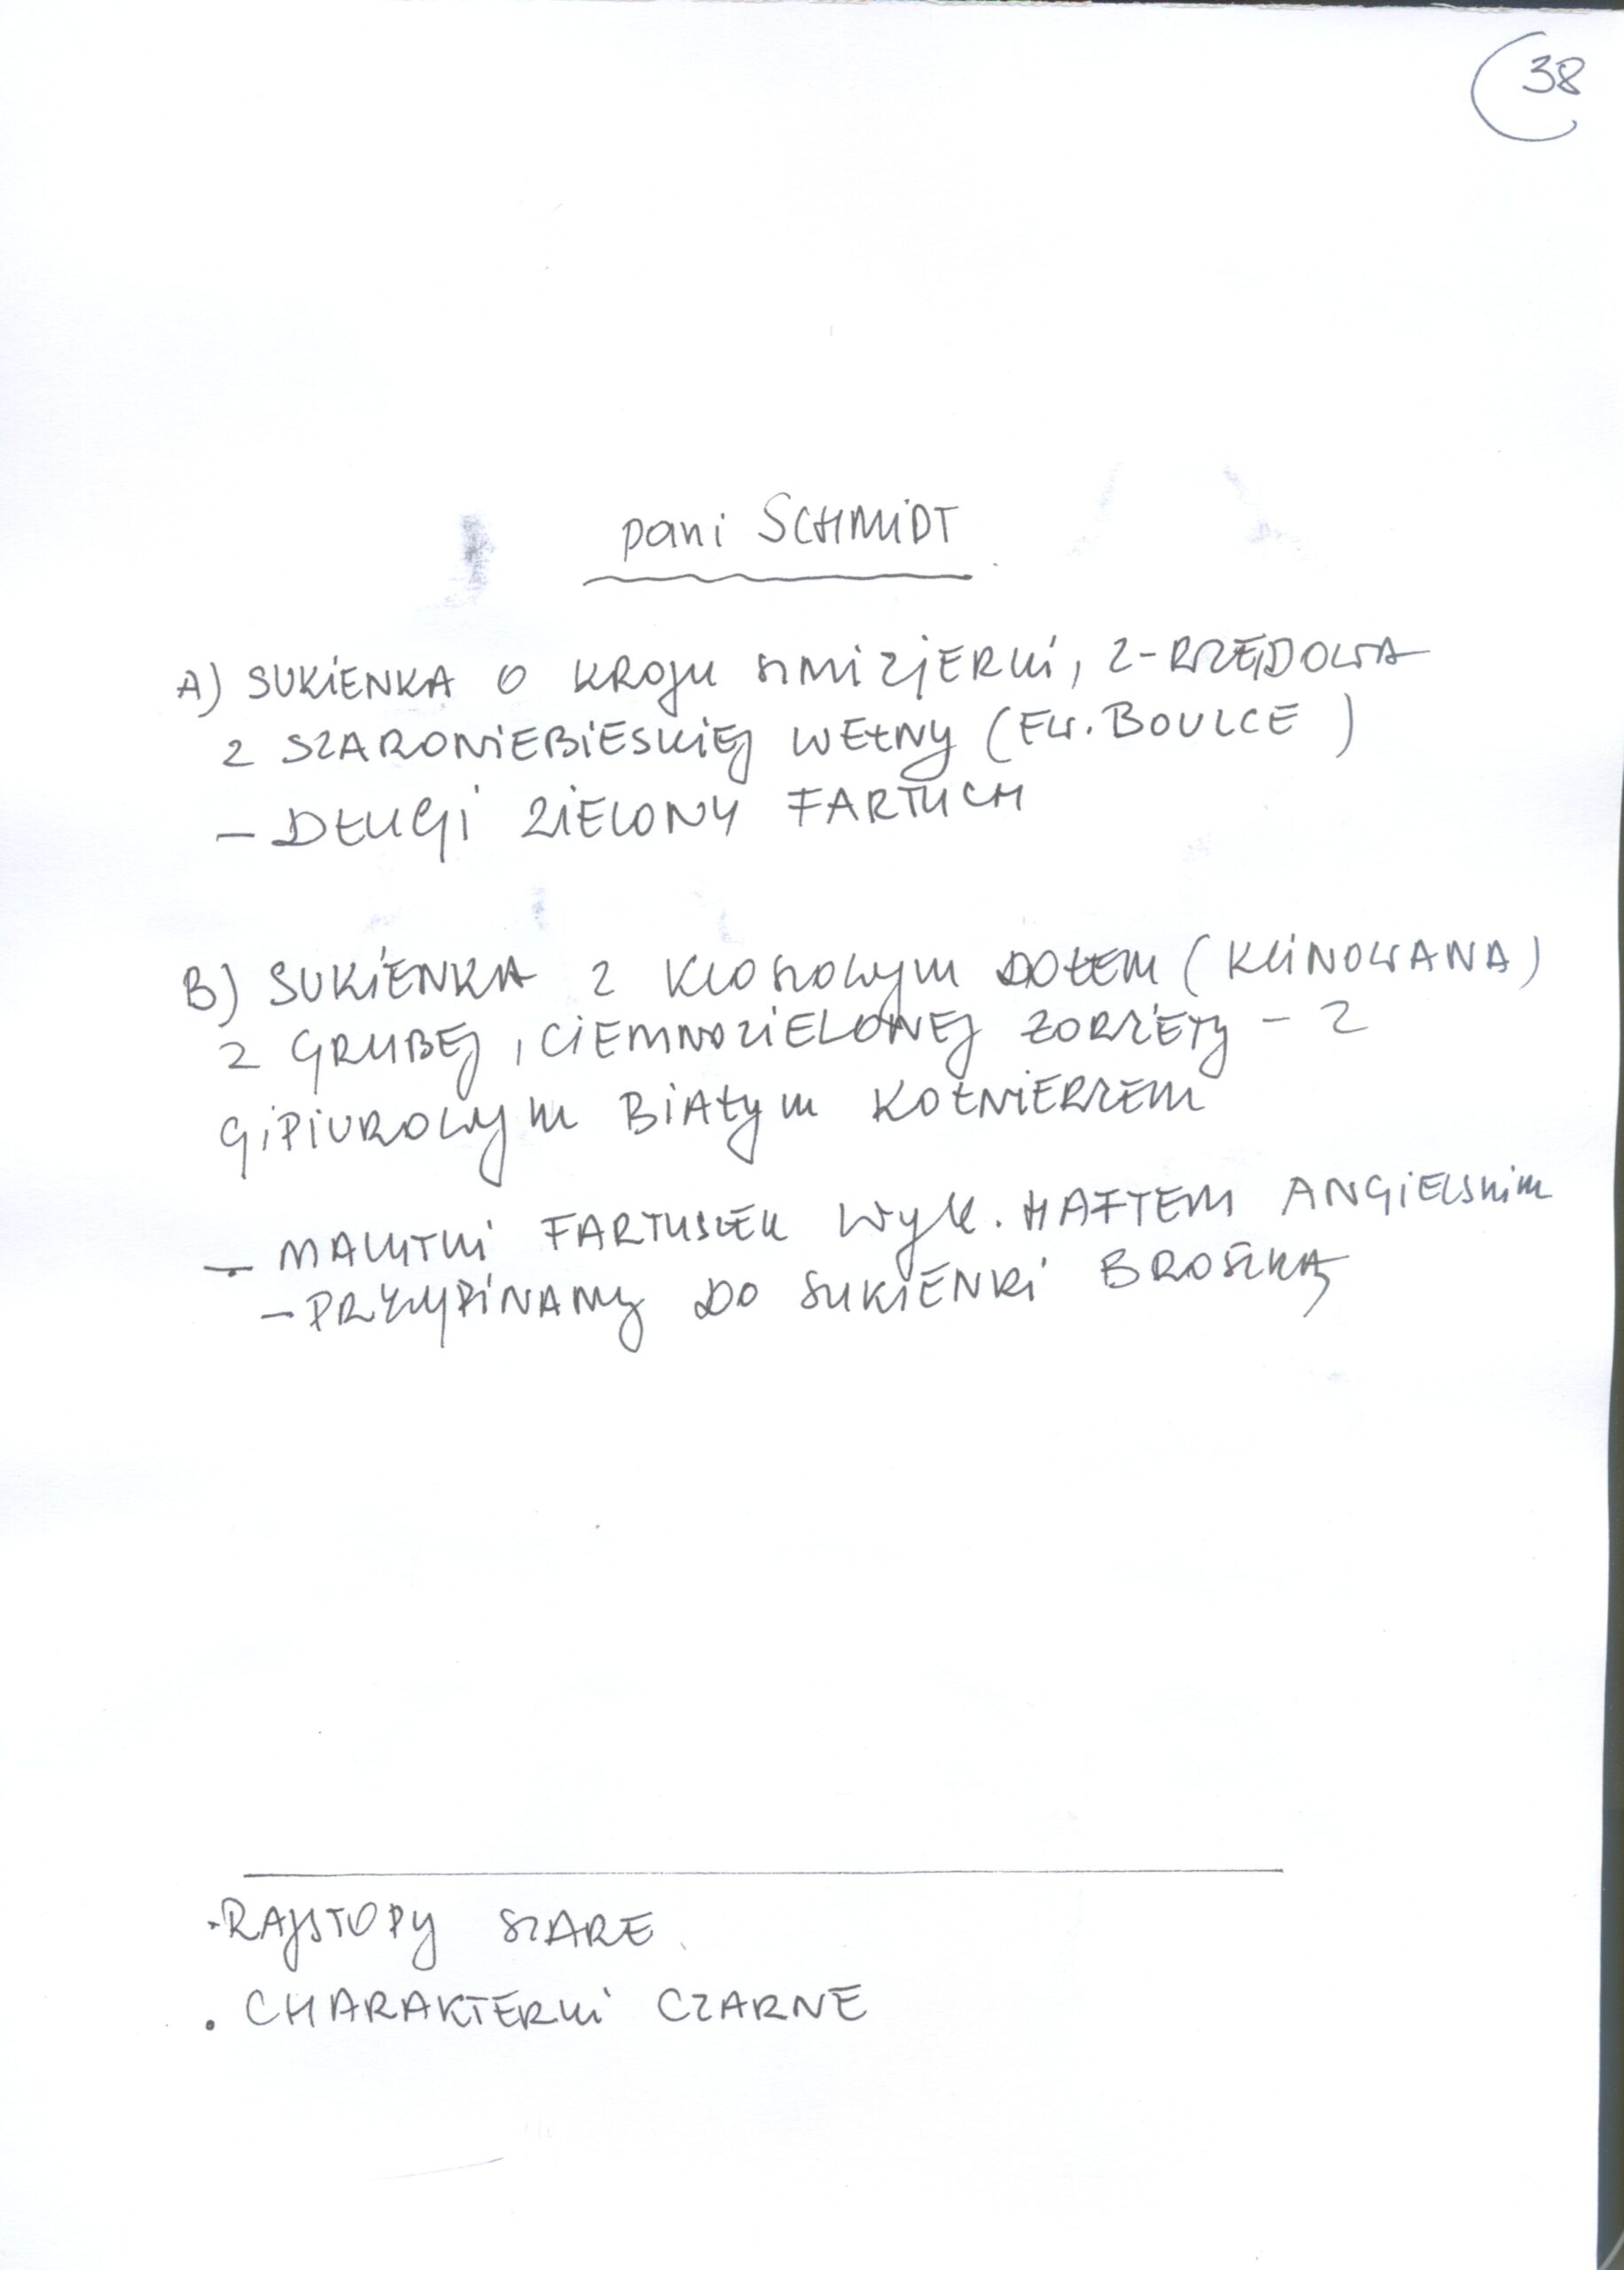 38
pani SCHMIDT
A) SUKIENKA O KROJU SZMIZJERKI, 2-RZĘDOWA
Z SZARONIEBIESKIEJ WEŁNY (EW. BOULCE)
- DŁUGI ZIELONY FARTUCH
B) SUKIENKA Z KLOSZOWYM DOŁEM (KLINOWANA)
Z GRUBEJ, CIEMNOZIELONEJ ŻORŻETY - Z
GIPIUROWYM BIAŁYM KOŁNIERZEM
- MALUTKI FARTUSZEK WYK. HAFTEM ANGIELSKIM
- PRZYPINANY DO SUKIENKI BROSZKĄ
• RAJSTOPY SZARE
• CHARAKTERKI CZARNE